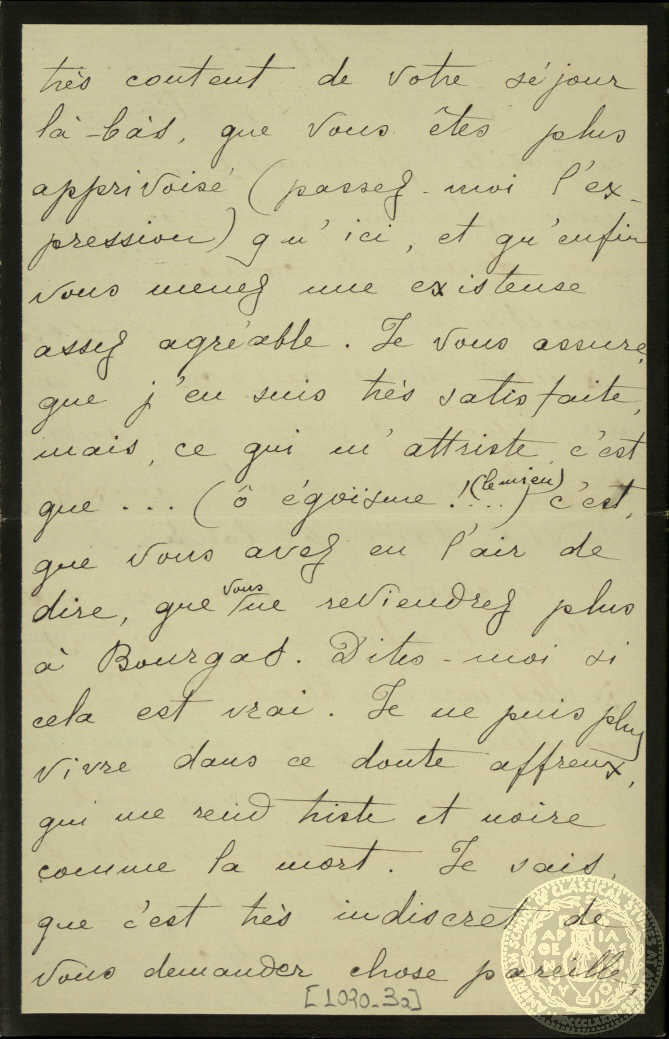 très content de votre séjour
là-bàs, que vous êtes plus
apprivoisé (passez-moi l'ex-
pression) qu'ici, et qu'enfin
vous menez une existense
assez agréable. Je vous assure,
que j'en suis très satisfaite,
mais, ce qui m'attriste, c'est
que ... (ô égoïsme!.... (le mien)) c'est,
que vous avez eu l'air de
dire, que vous ne reviendrez plus
à Bourgas. Dites-moi si
cela est vrai. Je ne puis plus
vivre dans ce doute affreux,
qui me rend triste et noire
comme la mort. Je sais,
que c'est très indiscret de
vous demander chose pareille,
[1030-3a]
AMERICAN SCHOOL OF CLASSICAL STUDIES